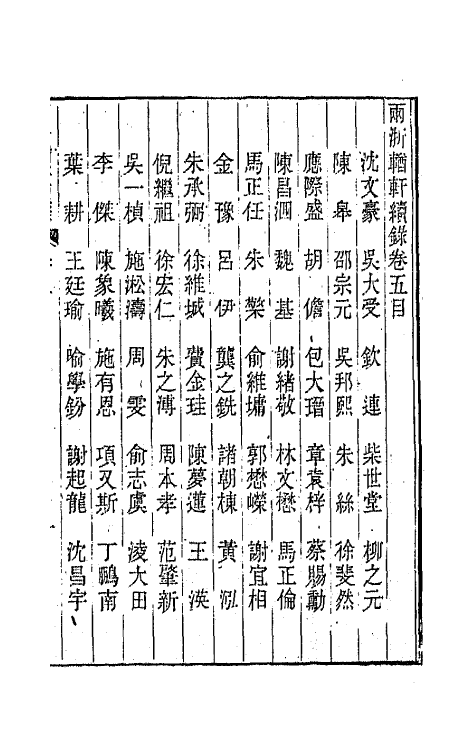 兩浙輶軒續錄卷五目
沈文豪　吳大受　欽　連　柴世堂　柳之元
陳　皋　邵宗元　吳邦熙　朱　絲　徐斐然
應際盛　胡　儋　包大瑨　章袁梓　蔡賜勳
陳昌泗　魏　基　謝緒敬　林文懋　馬正倫
馬正任　朱　榮　俞維墉　郭懋嶸　謝宜相
金　豫　呂　伊　龔之銑　諸朝棟　黃　泓
朱承弼　徐維城　費金珪　陳夢蓮　王　渶
倪繼祖　徐宏仁　朱之溥　周本孝　范肇新
吳一楨　施淞濤　周　雯　俞志虞　淩大田
李　傑　陳象曦　施有恩　項又斯　丁鵬南
葉　耕　王廷瑜　喻學鈖　謝起龍　沈昌宇